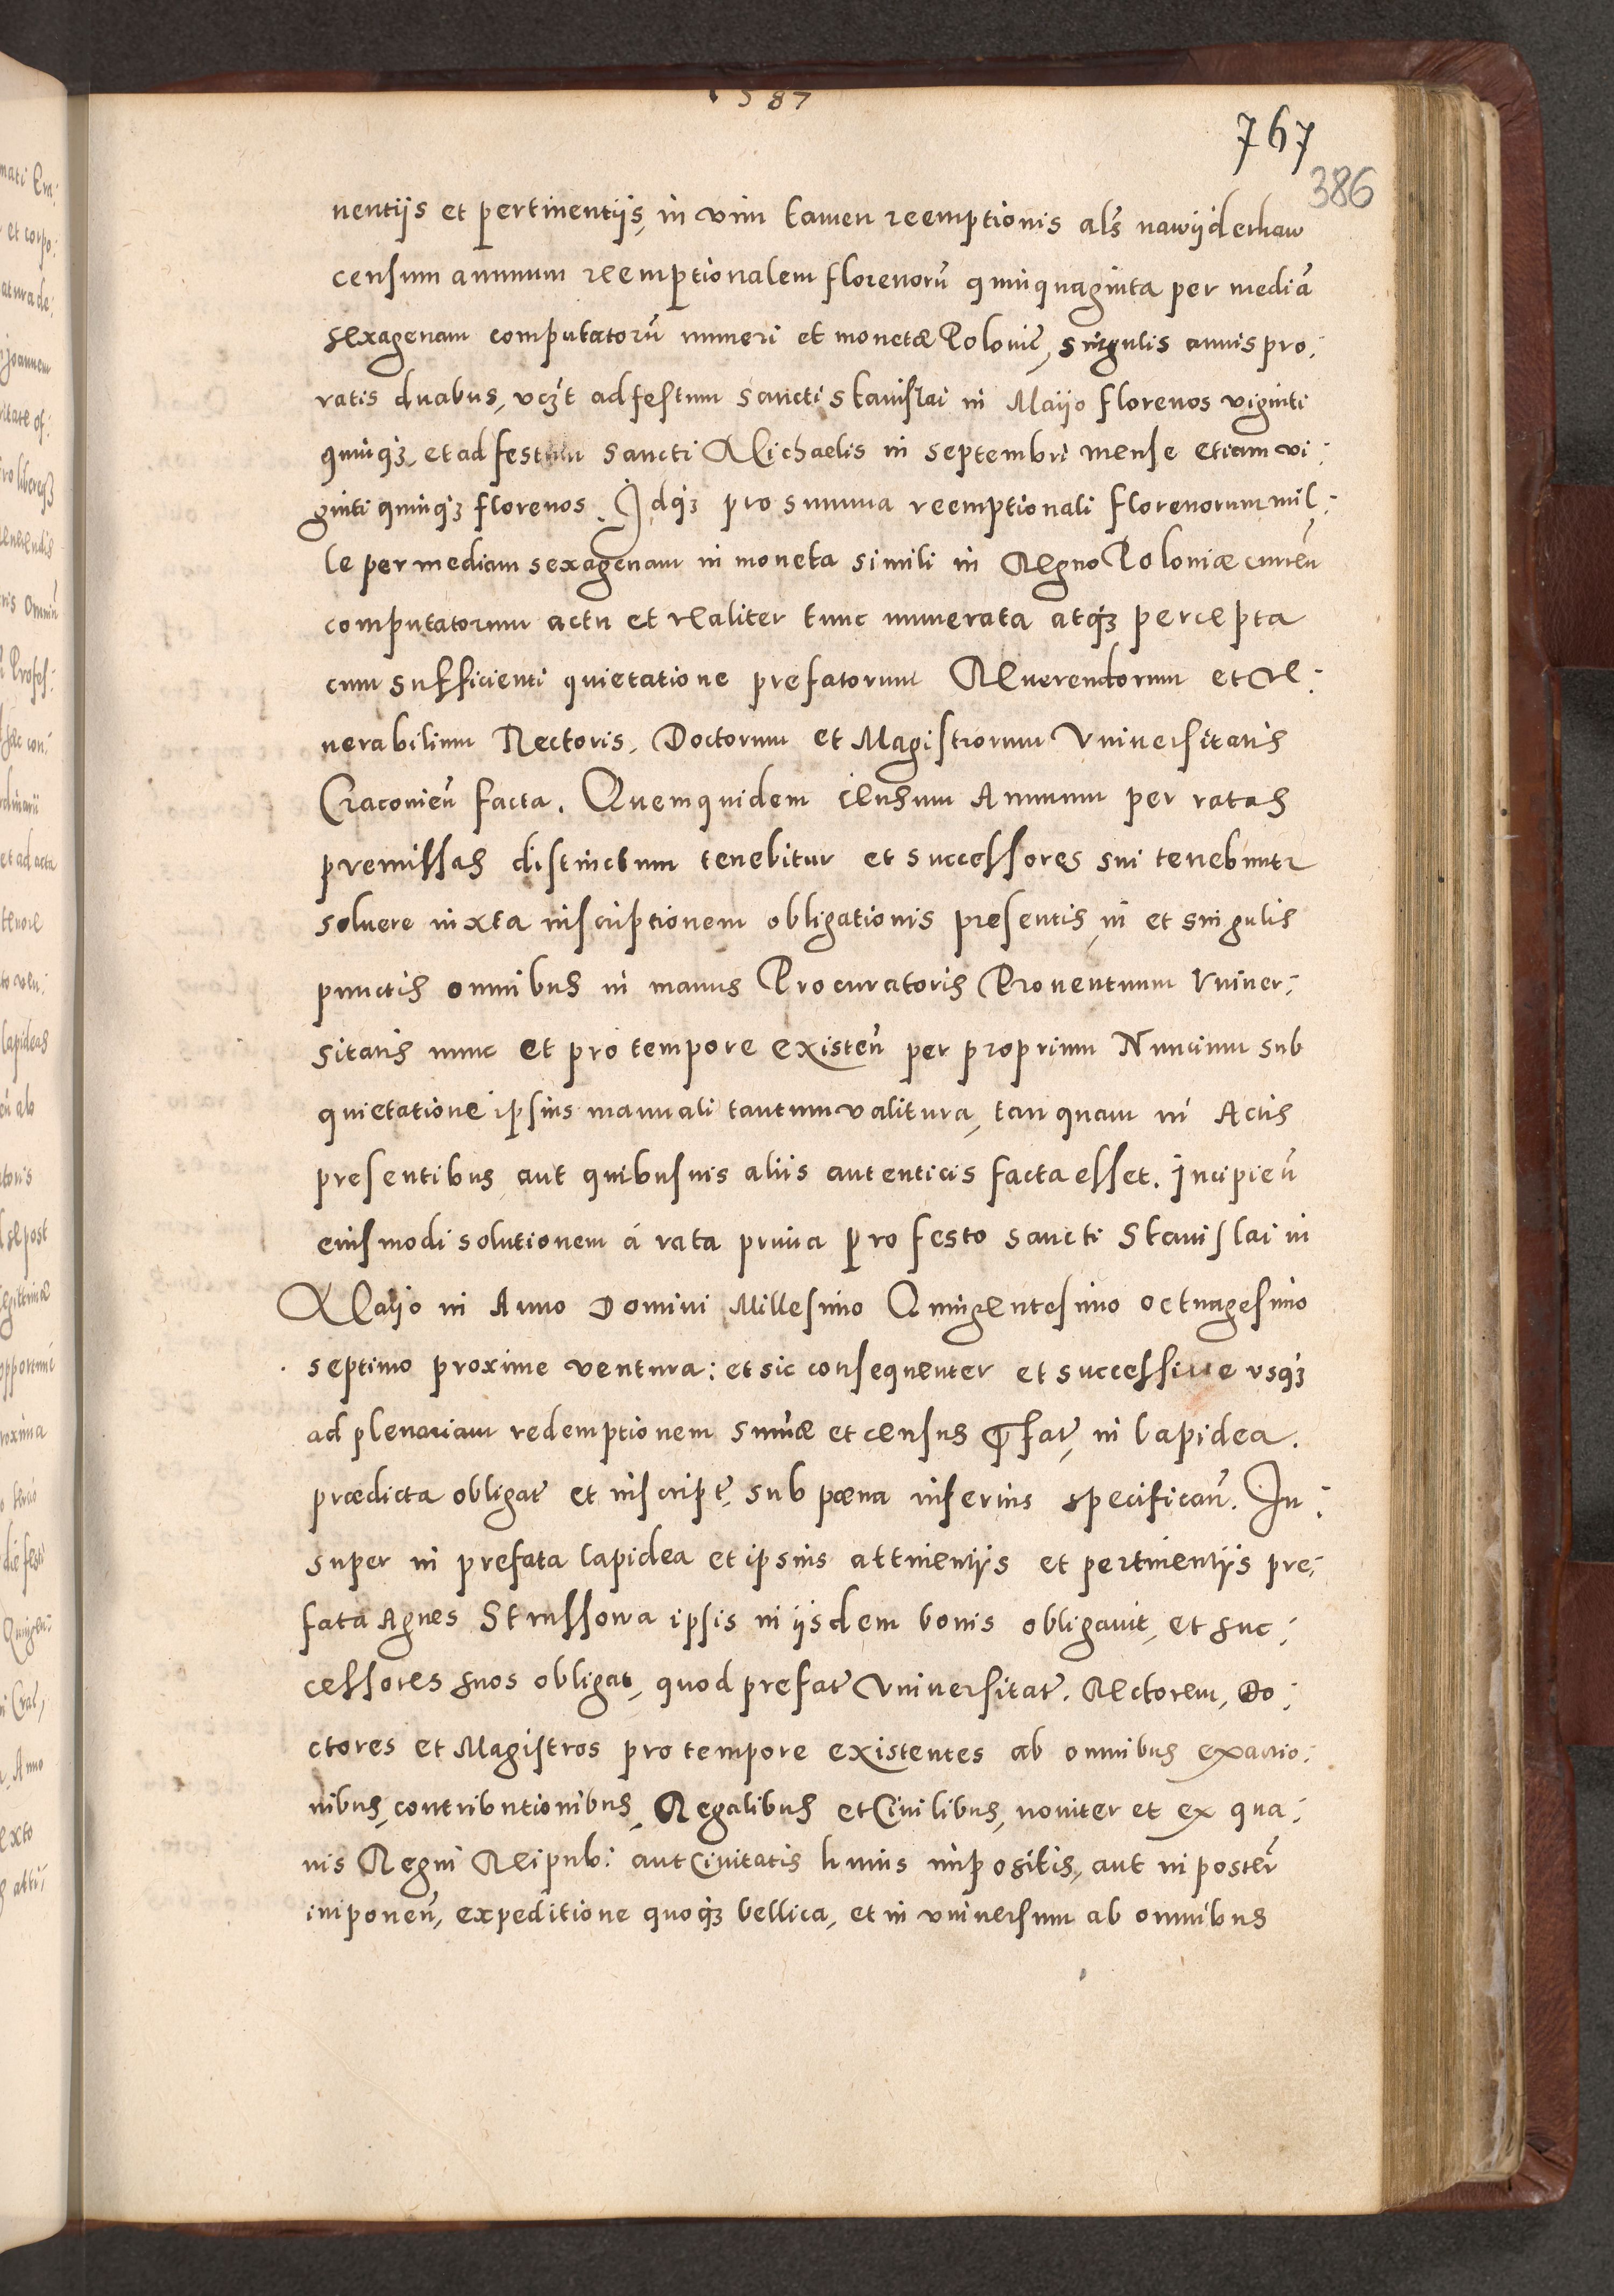 1587
767
386
nentijs et pertinentijs, in vim tamen reemptionis als nawijderkaw
censum annuum reemptionalem florenorū quinquaginta per mediā
sexagenam computatorū numeri et monetæ Poloniē, singulis annis pro:
ratis duabus, vczt ad festum Sancti Stanislai in Maijo florenos viginti
quinqȝ, et ad festum Sancti Michaelis in Septembri mense etiam vi:
ginti quinqȝ florenos. Idqȝ pro summa reemptionali florenorum mil:
le per mediam sexagenam in moneta simili in Regno Poloniæ curreñ
computatorum actu et realiter tunc numerata atqȝ percepta
cum sufficienti quietatione prefatorum Reuerendorum et Ve:
nerabilium Rectoris, Doctorum et Magistrorum Vniuersitatis
Cracouieñ facta. Quemquidem censum Annuum per ratas
premissas distinctum tenebitur et successores sui tenebuntr
soluere iuxta inscriptionem obligationis presentis, in et singulis
punctis omnibus in manus Procuratoris Prouentuum Vniuer:
sitatis nunc et pro tempore existeñ per proprium Nuncium sub
quietatione ipsius manuali tantum valitura, tanquam in Actis
presentibus aut quibusuis aliis autenticis facta esset. Incipieñ
eiusmodi solutionem á rata prima pro festo Sancti Stanislai in
Maijo in Anno Domini Millesimo Quingentesimo octuagesimo
septimo proxime ventura: et sic consequenter et successiue vsqȝ
ad plenariam redemptionem sum̄æ et census p̄fat, in lapidea.
prædicta obligat et inscript, sub pæna inferius specificañ. In:
super in prefata lapidea et ipsius attinentijs et pertinentijs pre:
fata Agnes Strussowa ipsis in ijsdem bonis obligauit, et suc:
cessores suos obligat, quod prefat Vniuersitat. Rectorem, Do:
ctores et Magistros pro tempore existentes ab omnibus exactio:
nibus, contributionibus, Regalibus et Ciuilibus, nouiter et ex qua:
uis Regni Reipub: aut Ciuitatis huius impositis, aut in poster
imponeñ, expeditione quoqȝ bellica, et in vniuersum ab omnibus